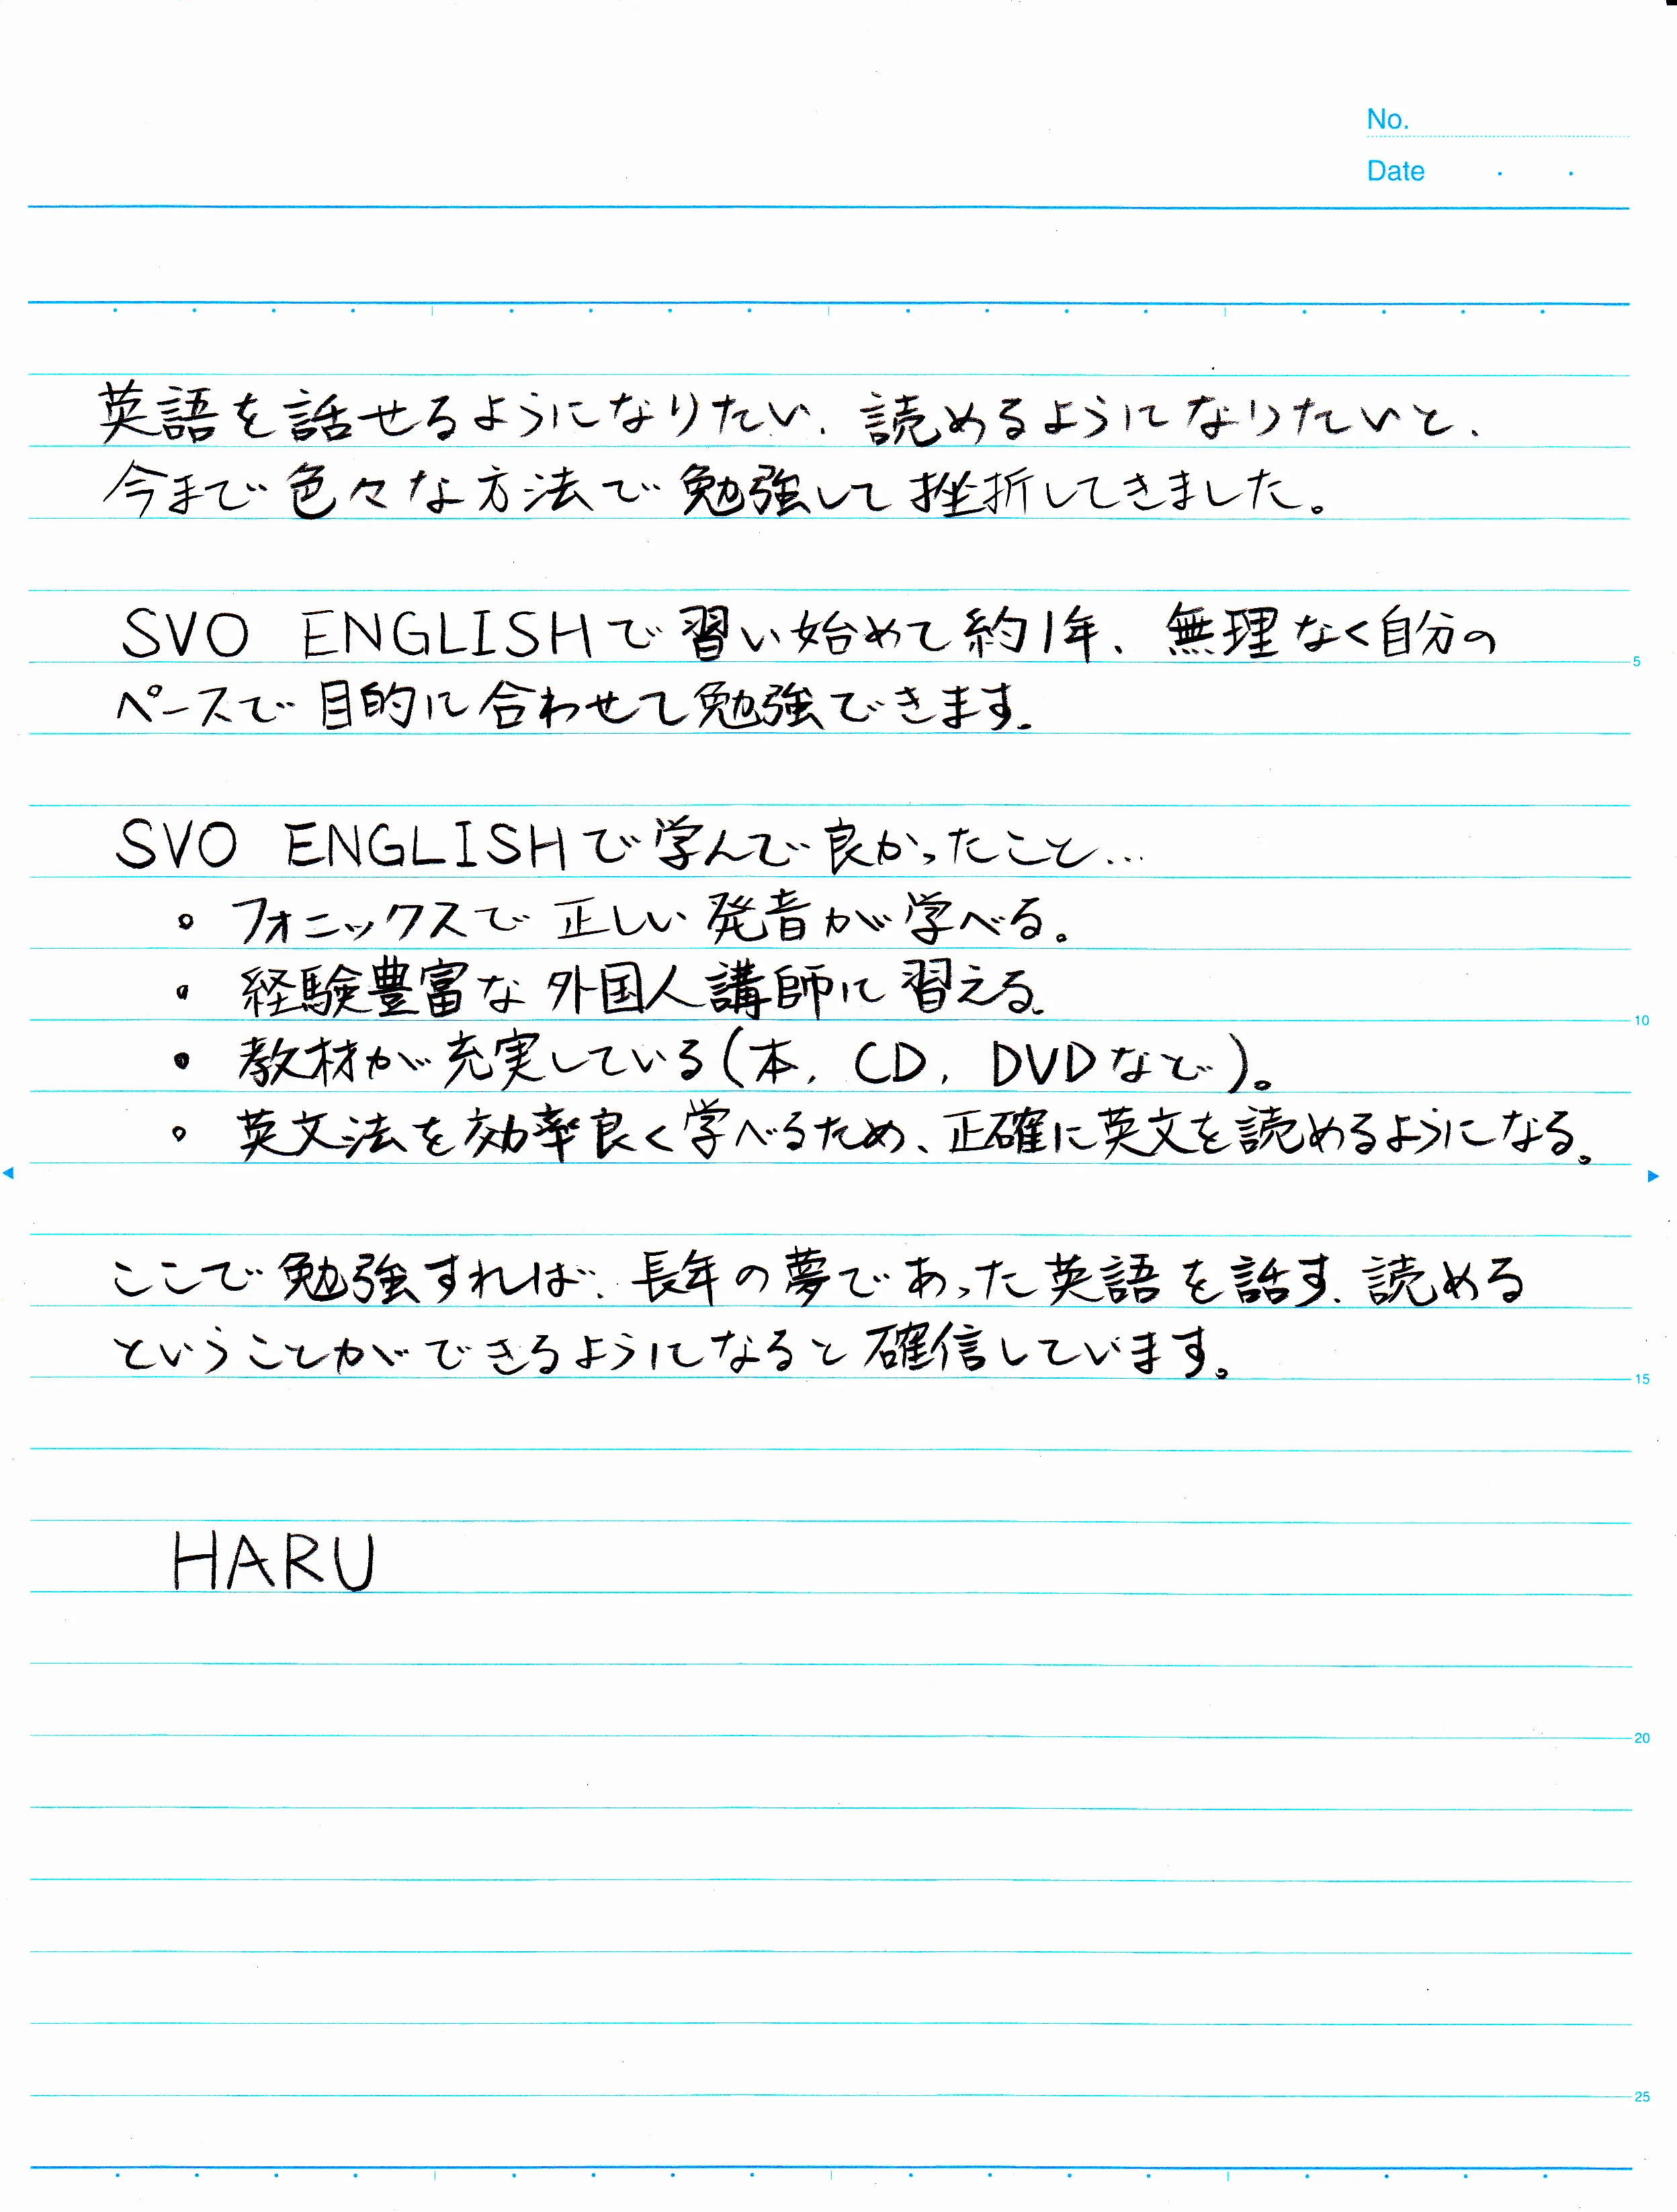 No.
Date
英語を話せるようになりたい、読めるようになりたいと、
今まで色々な方法で勉強して挫折してきました。
SVO ENGLISHで習い始めて約1年、無理なく自分の
ペースで目的に合わせて勉強できます。
5
SVO ENGLISHで学んで良かったこと…
。フォニックスで正しい発音が学べる。
。経験豊富な外国人講師に習える。
10
。教材が充実している(本, CD, DVDなど)。
。英文法を効率良く学べるため、正確に英文を読めるようになる。
ここで勉強すれば、長年の夢であった英語を話す、読める
ということができるようになると確信しています。
15
HARU
20
25